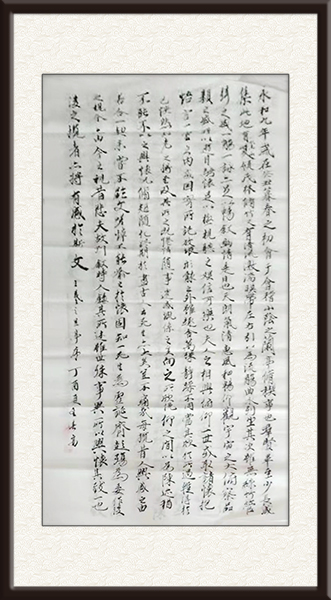 永和九年歲在癸丑暮春之初會于會稽山陰之蘭亭脩稧事也群賢畢至少長咸
集此地有崇山峻領茂林脩竹又有清流激湍暎帶左右引以為流觴曲水列坐其次雖無絲竹管
弦之盛一觴一詠亦足以暢敘幽情是日也天朗氣清惠風和暢仰觀宇宙之大俯察品
類之盛所以遊目騁懷足以極視聽之娛信可樂也夫人之相與俯仰一世或取諸懷抱
悟言一室之內或因寄所託放浪形骸之外雖趣舍萬殊靜躁不同當其欣於所遇暫得於
己快然自足不知老之將至及其所之既惓情隨事遷感慨係之矣向之所欣俛仰之間以為陳迹猶
不能不以之興懷況脩短隨化終期於盡古人云死生亦大矣豈不痛哉每攬昔人興感之由
若合一契未嘗不臨文嗟悼不能喻之於懷固知一死生為虛誕齊彭殤為妄作後
之視今亦由今之視昔悲夫故列敘時人錄其所述雖世殊事異所以興懷其致一也
後之攬者亦將有感於斯文 王羲之蘭亭序 丁酉夏